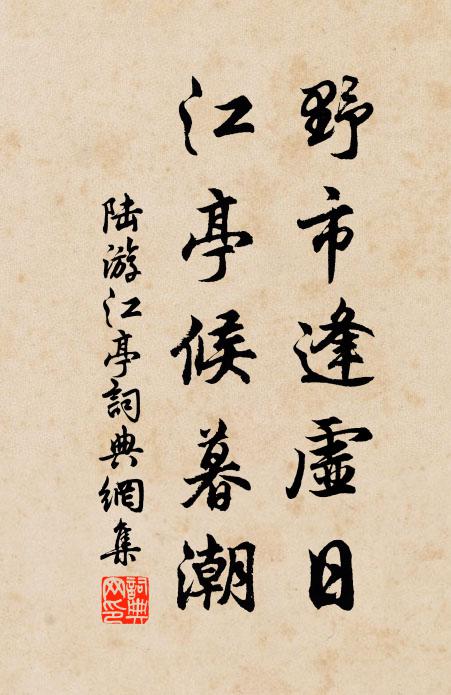 野市逢虛日
江亭候暮潮
陆游江亭詞典網集
詞典网印